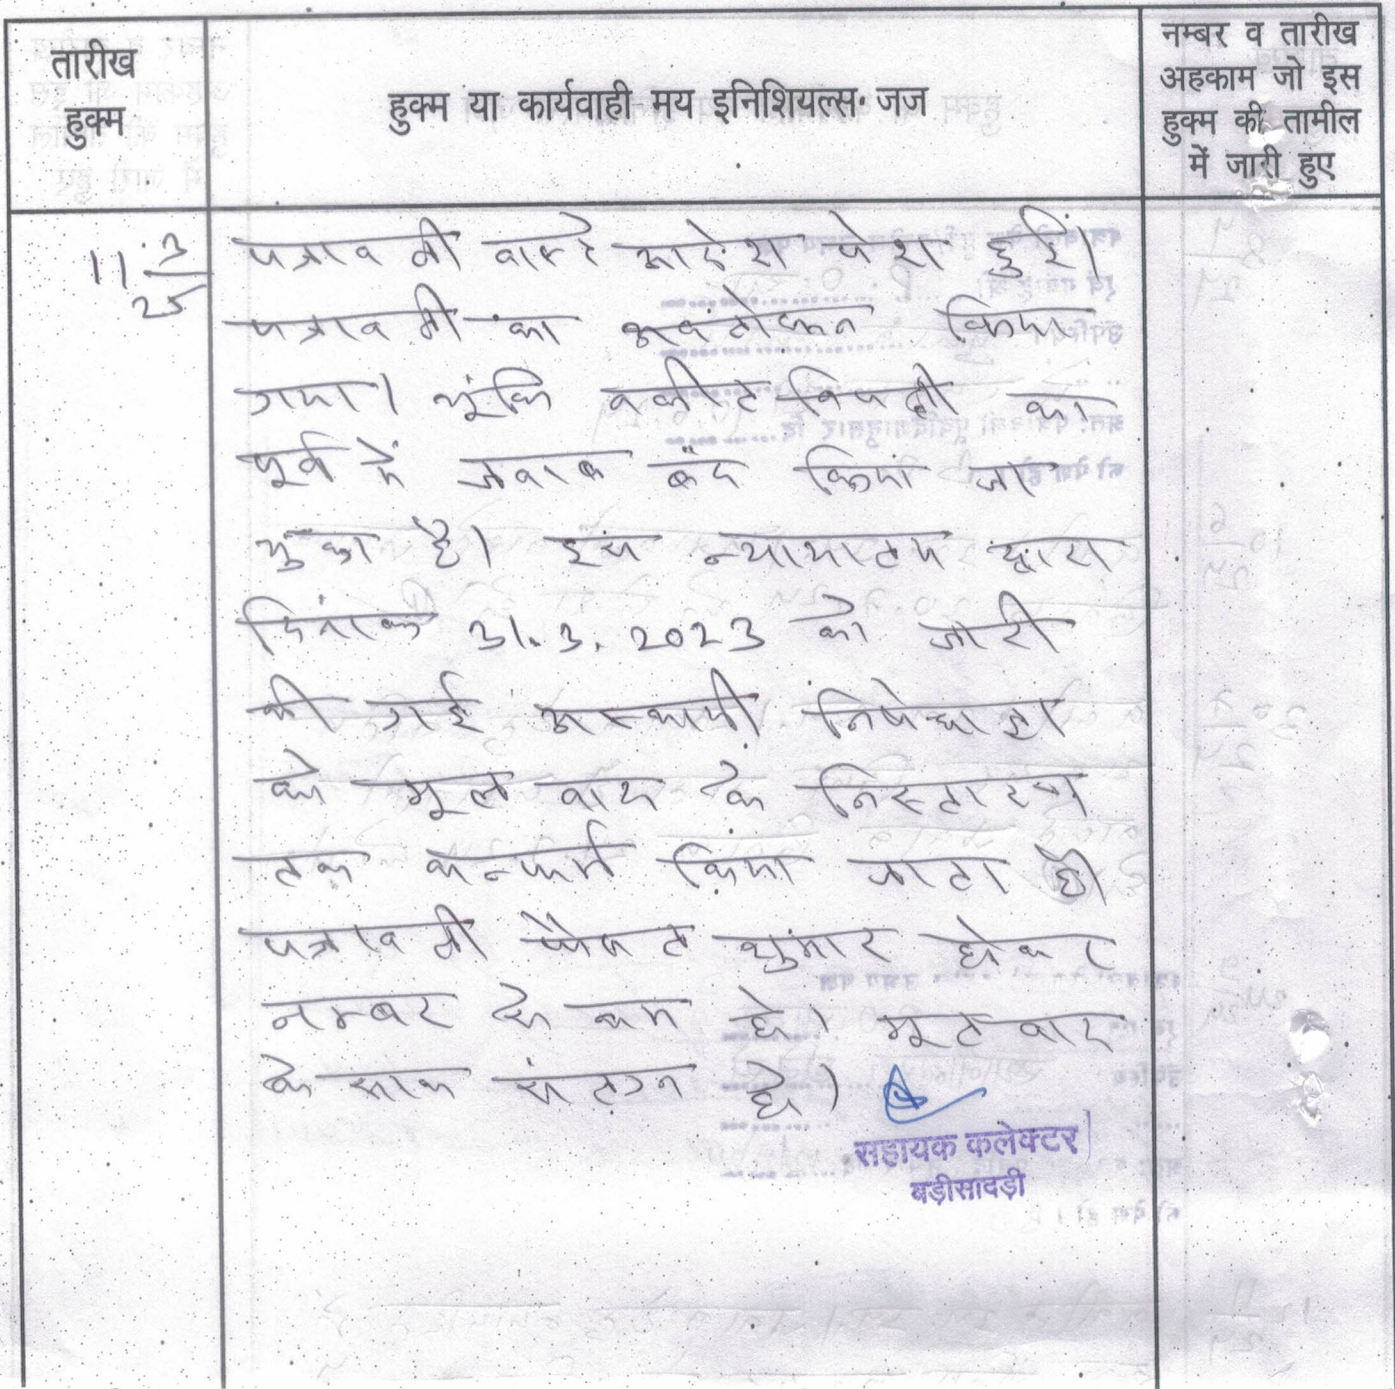 तारीख
हुक्म
हुक्म या कार्यवाही मय इनिशियल्स जज
नम्बर व तारीख
अहकाम जो इस
हुक्म की तामील
में जारी हुए
11 3/25
पत्रावली वास्ते आदेश पेश हुई।
पत्रावली का अवलोकन किया
गया। चूंकि वकील विपक्षी का
पूर्व में जवाब बंद किया जा
चुका है। इस न्यायालय द्वारा
दिनांक 31.3.2023 को जारी
की गई अस्थायी निषेधाज्ञा
को मूल वाद के निस्तारण
तक कन्फर्म किया जाता है।
पत्रावली फैसल शुमार होकर
नम्बर से कम हो। मूल वाद
के साथ संलग्न हो।
सहायक कलेक्टर
बड़ीसादड़ी